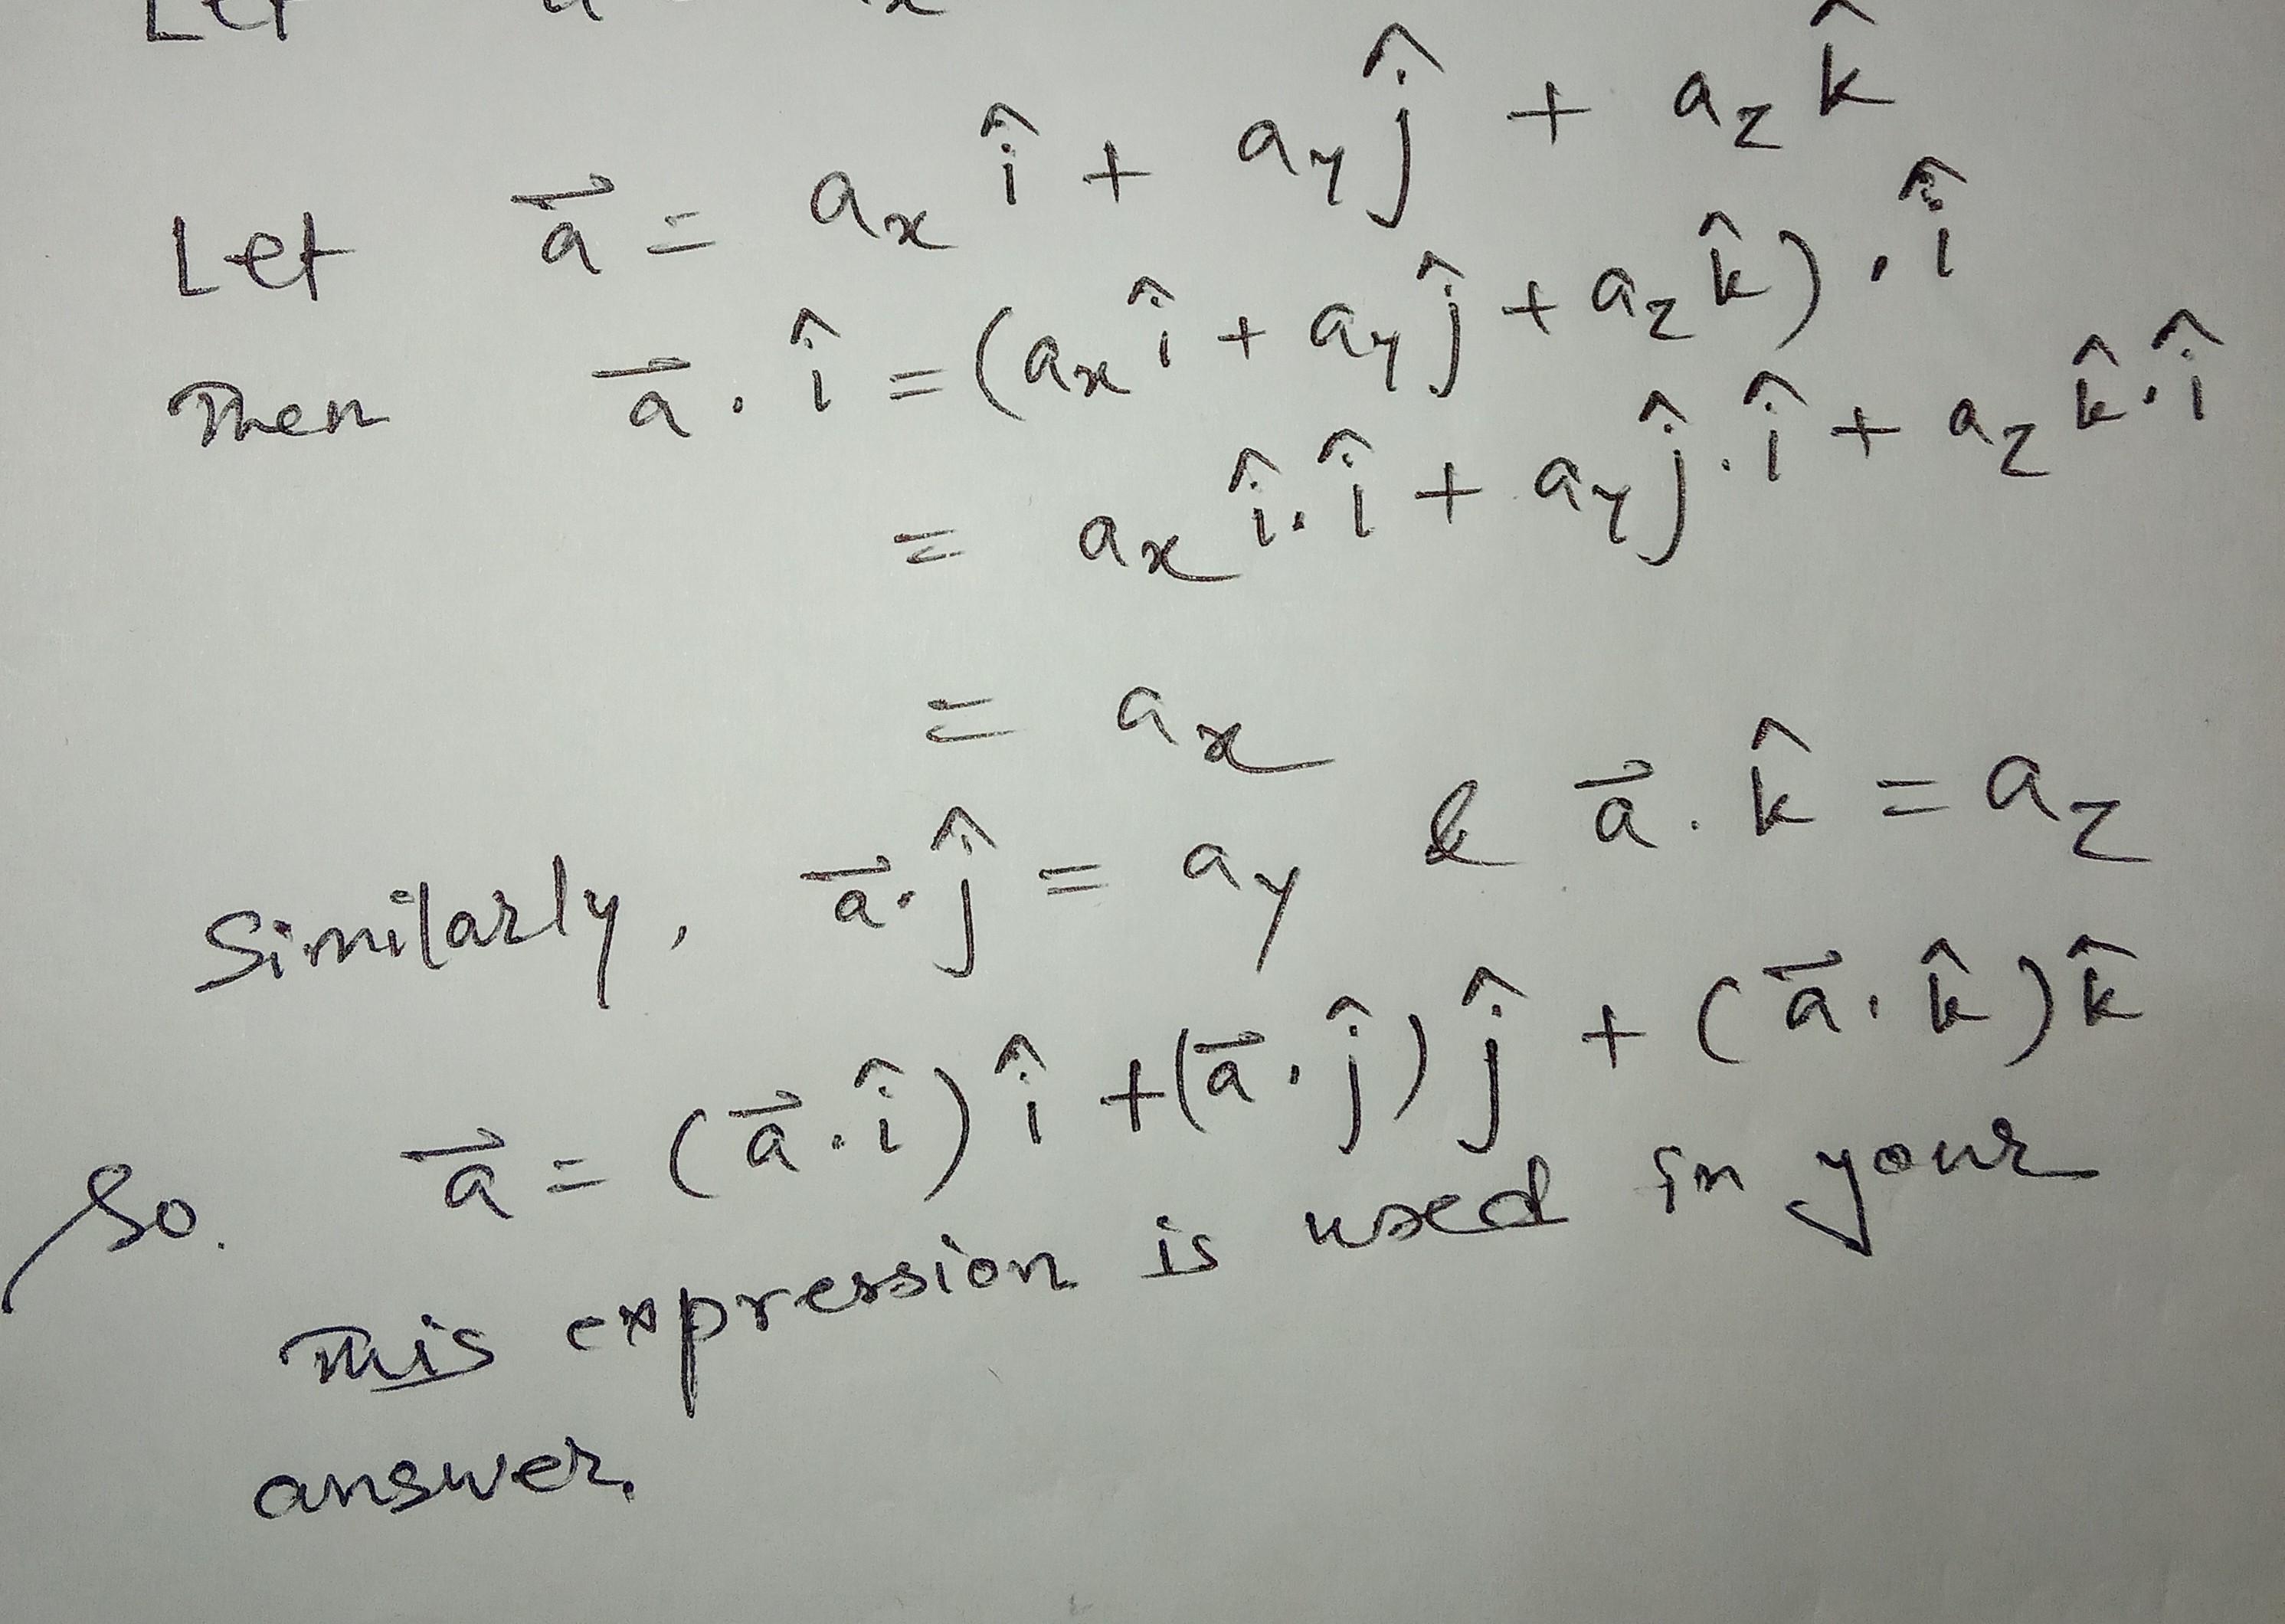 Let
Let a⃗ = aₓ î + a_y ĵ + a_z k̂
Then a⃗ . î = (aₓ î + a_y ĵ + a_z k̂) . î
= aₓ î . î + a_y ĵ . î + a_z k̂ . î
= aₓ
Similarly, a⃗ . ĵ = a_y & a⃗ . k̂ = a_z
So. a⃗ = (a⃗ . î) î + (a⃗ . ĵ) ĵ + (a⃗ . k̂) k̂
This expression is used in your
answer.